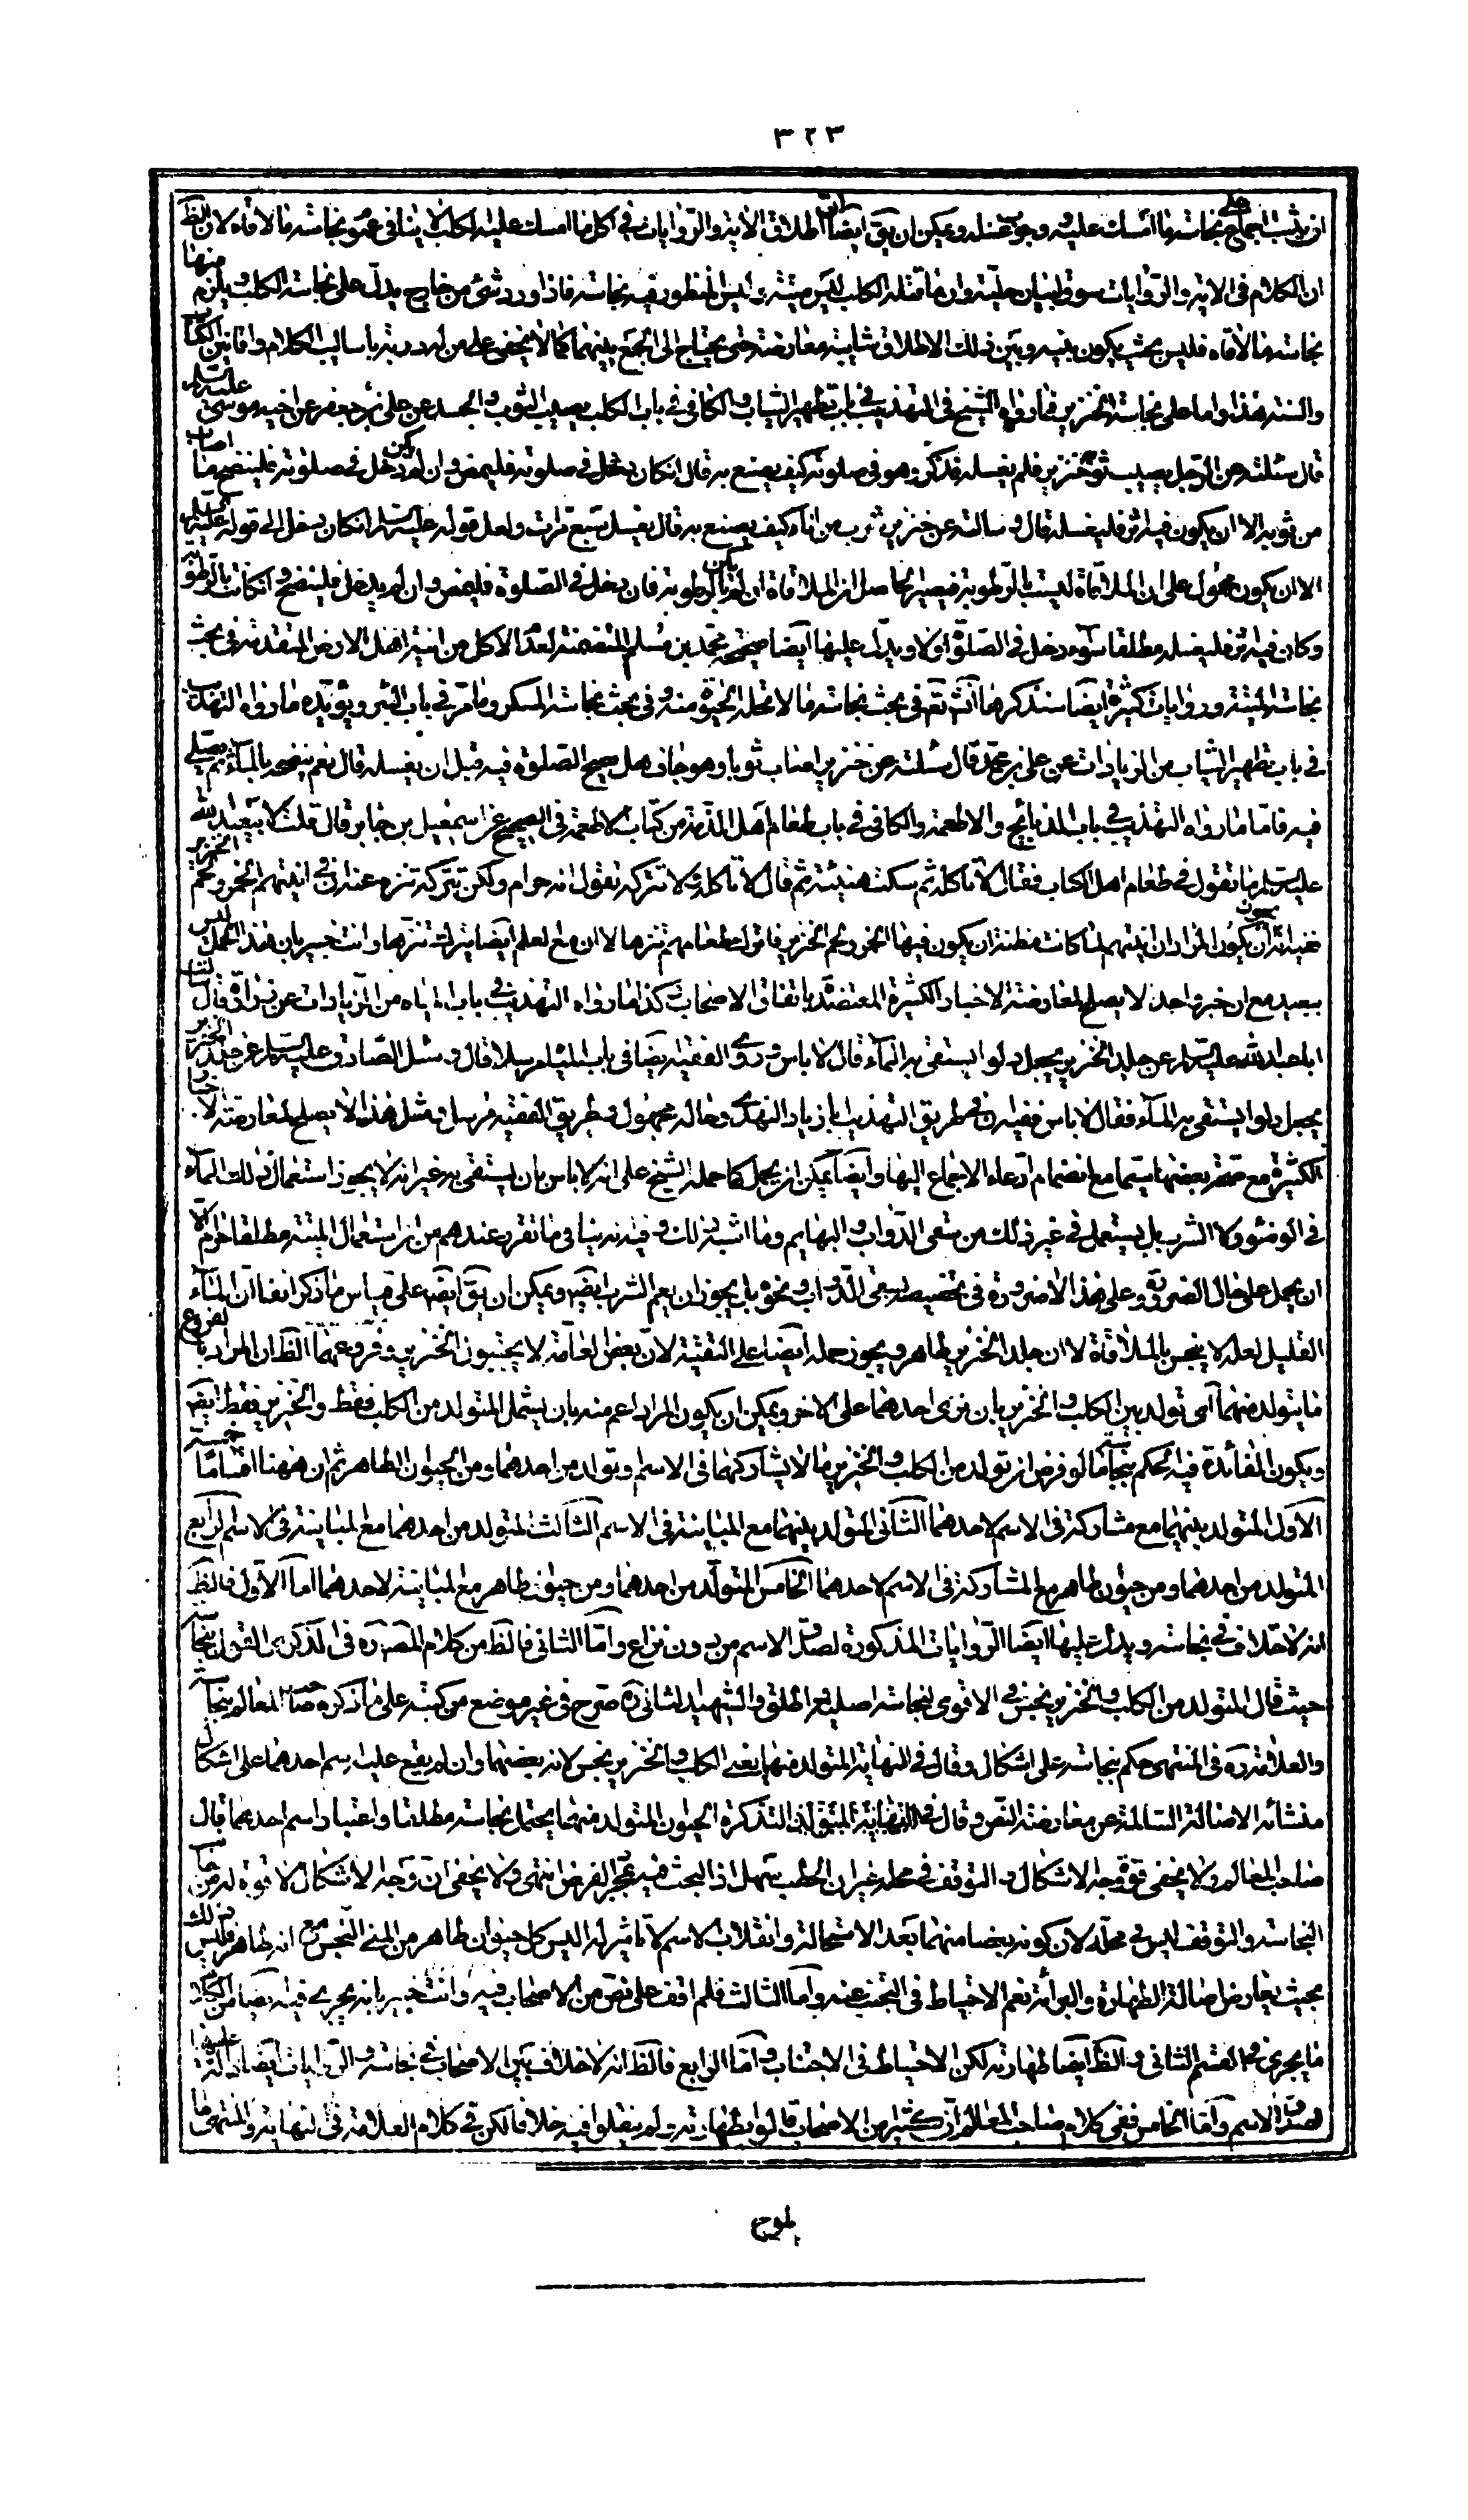 ٣٢٣
ان يثبت اجماع على نجاسة ما امسك عليه ووجوب غسله ويمكن ان يق ايضا ان اطلاق الاية والروايات في اكل ما امسك عليه الكلب لا ينافي عموم نجاسة ما لاقاه لان الظ
ان الكلام في الاية والروايات سوق لبيان حليته وان ما قتله الكلب ليس ميتة وليس المنظور فيه نجاسته فاذا ورد شئ من خارج يدل على نجاسة الكلب ويلزم منها
نجاسة ما لاقاه فليس بحيث يكون بينه وبين ذلك الاطلاق شايبة معارضة حتى يحتاج الى الجمع بينهما كما لا يخفى على من له دربة باساليب الكلام واما من الكتاب
والسنة هذا واما على نجاسة الخنزير فما رواه الشيخ في التهذيب في باب تطهير الثياب والكافي في باب الكلب يصيب الثوب والجسد عن علي بن جعفر عن اخيه موسى عليه السلم
قال سئلته عن الرجل يصيب ثوبه خنزير فلم يغسله فذكر وهو في صلوته كيف يصنع به قال ان كان دخل في صلوته فليمض وان لم يكن دخل في صلوته فلينضح ما اصاب
من ثوبه الا ان يكون فيه اثر فليغسله قال وسالته عن خنزير شرب من اناء كيف يصنع به قال يغسل سبع مرات ولعل قوله عليه السلم ان كان دخل الى قوله عليه السلم
الا ان يكون محمول على ان الملاقاة ليست بالرطوبة فيصير الحاصل ان الملاقاة ان لم يكن بالرطوبة فان دخل في الصلوة فليمض وان لم يدخل فلينضح وان كانت بالرطوبة
وكان فيه اثر فليغسله مطلقا سواء دخل في الصلوة اولا ويدل عليها ايضا صحيحة محمد بن مسلم المتضمنة لعدم الاكل من انية اهل الارض المتقدمة في بحث
نجاسة الميتة وروايات كثيرة ايضا سنذكرها انش تع في بحث نجاسة ما لا تحله الحيوة منه وفي بحث نجاسة المسكر وما مر في باب البئر ويؤيده ما رواه التهذيب
في باب تطهير الثياب من الزيادات عن علي بن محمد قال سئلته عن خنزير اصاب ثوبا وهو جاف هل يصح الصلوة فيه قبل ان يغسله قال نعم ينضحه بالماء ثم يصلي
فيه فاما ما رواه التهذيب في باب الذبايح والاطعمة والكافي في باب طعام اهل الذمة من كتاب الاطعمة في الصحيح عن اسمعيل بن جابر قال قلت لابيعبد الله
عليه السلم ما تقول في طعام اهل الكتاب فقال لا تاكله ثم سكت هنيئة ثم قال لا تاكله ولا تتركه تقول انه حرام ولكن تتركه تنزه عنه ان في انيتهم الخمر ولحم الخنزير
ففيه انه يجوز ان يكون المراد ان انيتهم لما كانت مظنة ان يكون فيها الخمر ولحم الخنزير فاترك طعامهم تنزها لا ان مع العلم ايضا يترك تنزها وانت خبير بان هذا الحمل ليس
ببعيد مع ان خبر واحد لا يصلح لمعارضة الاخبار الكثيرة المعتضدة باتفاق الاصحاب وكذا ما رواه التهذيب في باب المياه من الزيادات عن زرارة قال سئلت
ابا عبد الله عليه السلم عن جلد الخنزير يجعل دلوا يستقى به الماء قال لا باس وروى الفقيه ايضا في باب المياه مرسلا قال وسئل الصادق عليه السلم عن جلد الخنزير
يجعل دلوا يستقى به الماء فقال لا باس ففيه ان في طريق التهذيب ابا زياد النهدي وحاله مجهول وطريق الفقيه مرسل ومثل هذا لا يصلح لمعارضة الاخبار
الكثيرة مع صحة بعضها سيما مع انضمام ادعاء الاجماع اليها وايضا يمكن ان يحمل كما حمله الشيخ على انه لا باس بان يستقى به غير انه لا يجوز استعمال ذلك الماء
في الوضوء ولا الشرب بل يستعمل في غير ذلك من سقي الدواب والبهايم وما اشبه ذلك وفيه انه ينافي ما تقرر عندهم من ان استعمال الميتة مطلقا حرام الا
ان يحمل على حال الضرورة وعلى هذا لا ضرورة في تخصيصه بسقي الدواب ونحوه بل يجوز ان يعم الشرب ايض ويمكن ان يق ايض على قياس ما ذكر انفا ان الماء
القليل لعله لا ينجس بالملاقاة لا ان جلد الخنزير طاهر ويجوز حمله ايضا على التقية لان بعض العامة لا يجتنبون الخنزير وفروعهما الظ ان المراد بالفروع
ما يتولد منهما اي تولد بين الكلب والخنزير بان نزى احدهما على الاخر ويمكن ان يكون المراد اعم منه بان يشمل المتولد من الكلب فقط والخنزير فقط ايض
ويكون الفائدة فيه الحكم بنجاسة ما لو فرض انه تولد من الكلب والخنزير ما لا يشاركهما في الاسم او تولد من احدهما ومن الحيوان الطاهر ثم ان ههنا اقساما خمسة
الاول المتولد بينهما مع مشاركته في الاسم لاحدهما الثاني المتولد بينهما مع المباينة في الاسم الثالث المتولد من احدهما مع المباينة في الاسم الرابع
المتولد من احدهما ومن حيوان طاهر مع المشاركة في الاسم لاحدهما الخامس المتولد من احدهما ومن حيوان طاهر مع المباينة لاحدهما اما الاول فالظ
انه لا خلاف في نجاسته ويدل عليها ايضا الروايات المذكورة لصدق الاسم من دون نزاع واما الثاني فالظ من كلام المصنف ره في الذكرى القول بنجاسته
حيث قال المتولد من الكلب والخنزير نجس في الاقوى لنجاسة اصليه الملقق والشهيد الثاني ره صرح في غير موضع من كتبه على ما ذكره صاحب المعالم بنجاسته
والعلامة ره في المنتهى حكم بنجاسته على اشكال وقال في النهاية المتولد منها يعني الكلب والخنزير نجس لانه بعضهما وان لم يقع عليه اسم احدهما على اشكال
منشائه الاصالة السالمة عن معارضة النص وقال في التذكرة الحيوان المتولد منهما يحتمل نجاسته مطلقا واعتبار اسم احدهما قال
صاحب المعالم ولا يخفى قوة وجه الاشكال والتوقف في محله غير ان الخطب سهل اذ البحث فيه لمجرد الفرض انتهى ولا يخفى ان وجه الاشكال لا قوة له من جانب
النجاسة والتوقف ليس في محله لان كونه بعضا منهما بعد الاستحالة وانقلاب الاسم لا تاثير له اليس كل حيوان طاهر من المني النجس مع انه طاهر فليس ذلك
بحيث يعارض اصالة الطهارة والبرائة نعم الاحتياط في التجنب عنه واما الثالث فلم اقف على نص من الاصحاب فيه وانت خبير بانه يجري فيه ايضا من الكلام
ما يجري في القسم الثاني والظ ايضا طهارته لكن الاحتياط في الاجتناب واما الرابع فالظ انه لا خلاف بين الاصحاب في نجاسته والروايات ايضا دالة عليها
لصدق الاسم واما الخامس ففي كلام صاحب المعالم ان كثيرا من الاصحاب قالوا بطهارته ولم ينقلوا فيه خلافا لكن في كلام العلامة في النهاية والمنتهى ما
يلوح